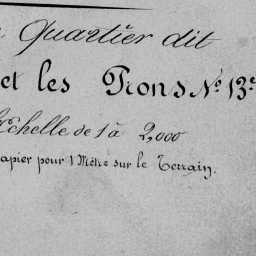 Quartier dit
et les Prons N.º 13.e
Echelle de 1 à 2,000
apier pour 1 Mètre sur le Terrain.